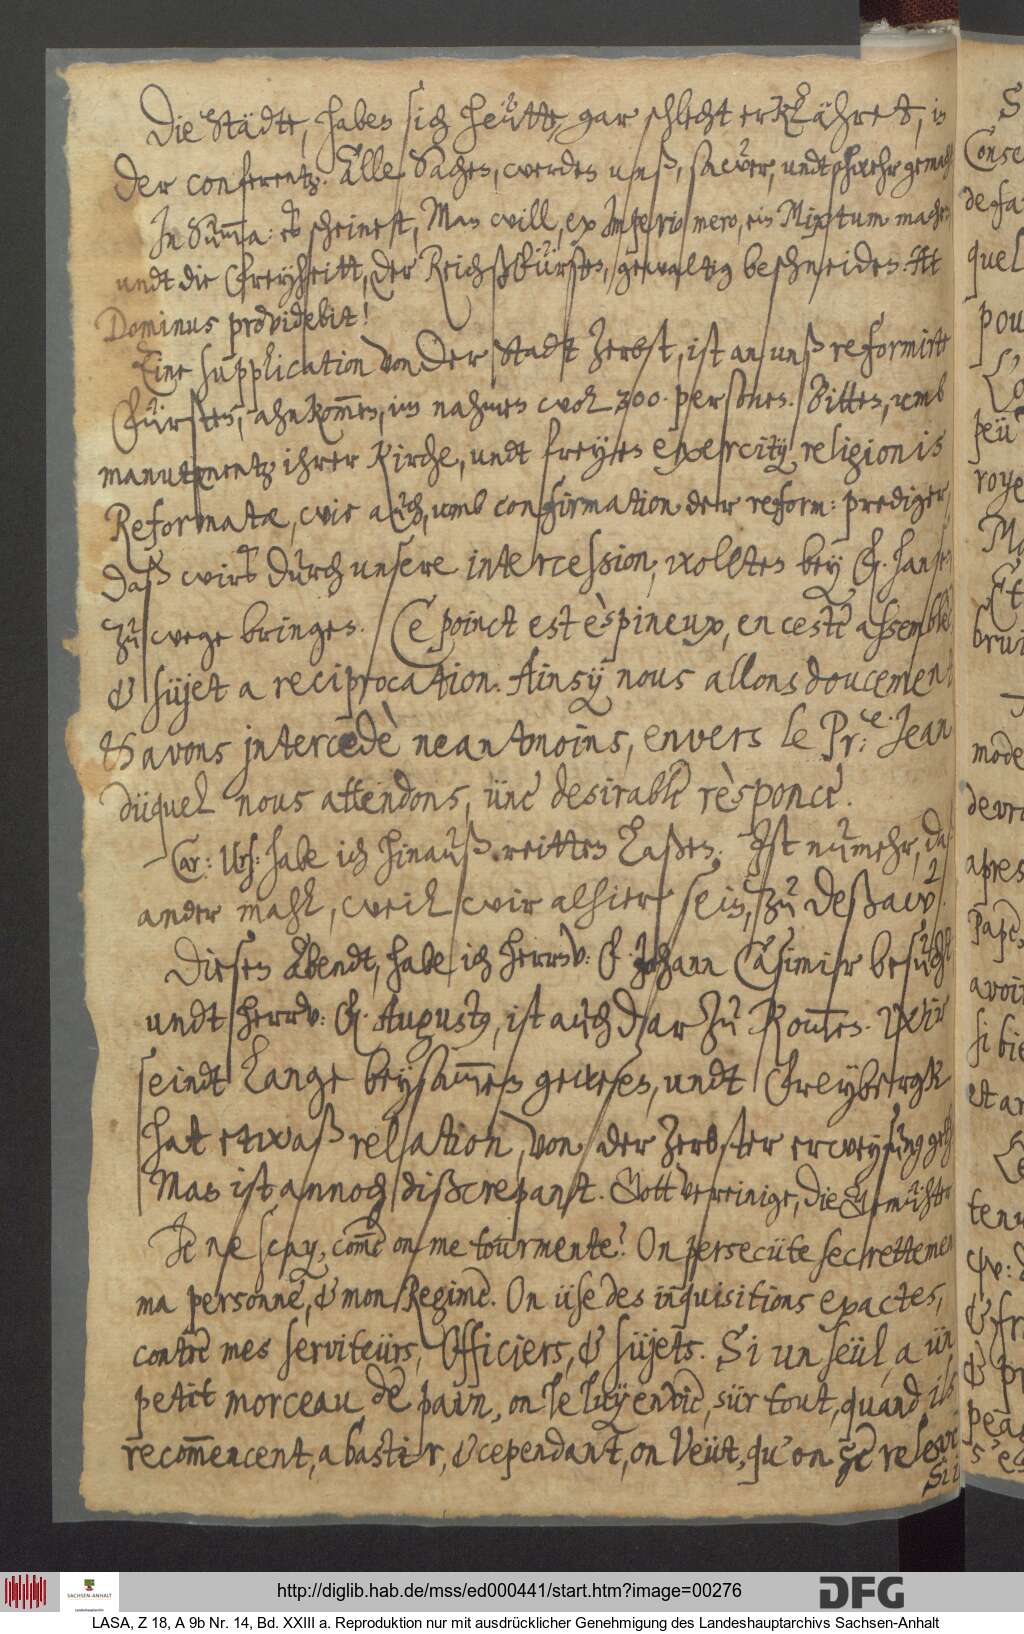 Die Städte, haben sich heütte, gar schlecht erklähret, in
der conferentz. Alle Sachen, werden unß, sawer, undt schwehr gemacht
In Summa: es scheinet, Man will, ex Imperio mero, ein Mixtum machen
undt die Freyheitt, der ReichsFürsten, gewaltig beschneiden. At
Dominus providebit!
Eine supplication von der Stadt Zerbst, ist an unß reformirte
Fürsten, ahnkommen, im nahmen wol 300. personen. Bitten, umb
manutenentz ihrer Kirche, undt freyes exercitij religionis
Reformatæ, wie auch, umb confirmation der reform: prediger,
daß wirs durch unsere intercession, wolten bey F. Hansen
zu wege bringen. Ce poinct est èspineux, en ceste assemblèe
& süjet a reciprocation. Ainsy nous allons doucement
& avons intercedè neantmoins, envers le Pr:ce. Jean
düquel nous attendons, üne desirable rèsponce.
Car: Urs: habe ich hinauß reitten laßen. Ist numehr, das
ander mahl, weil wir alhier sein, zu Deßaw.
Diesen Abendt, habe ich herrnv: F. Johann Casimir besucht
undt herrv: F. Augustus, ist auch dar zu kommen. Wir
seindt lange beysammen gewesen, undt Freybergk
hat etwaß relation, von der Zerbster erweysung geth
Man ist annoch dißcrepant. Gott vereinige, die Gemühter
Je ne scay, comme on me tourmente? On persecüte secrettement
ma personne, & mon Regime. On üse des inquisitions exactes,
contre mes serviteürs, Officiers, & süjets. Si un seül, a ün
petit morceau de pain, on le luy envie, sür tout, quand ils
recommencent, a bastir, & cependant, on veüt, qu'on se releve
http://diglib.hab.de/mss/ed000441/start.htm?image=00276
SACHSEN-ANHALT
Landeshauptarchiv
DFG
LASA, Z 18, A 9b Nr. 14, Bd. XXIII a. Reproduktion nur mit ausdrücklicher Genehmigung des Landeshauptarchivs Sachsen-Anhalt